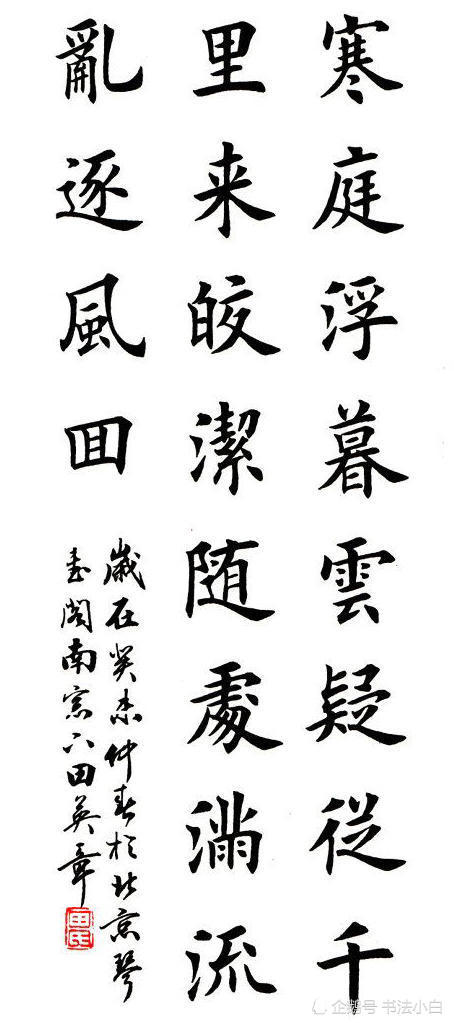 寒庭浮暮雲疑從千
里来皎潔随處滿流
亂逐風囬
歲在癸未仲春於北京琴
書閣南窓下田英章
企鹅号 书法小白